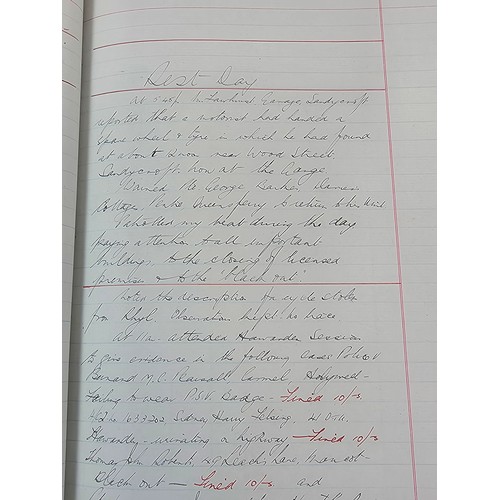 Rest Day
At 5.45p Mr Garage, Sandycroft
reported that a motorist had handed a
spare wheel & tyre in which he had found
at about near Wood Street
Sandycroft. now at the Garage.
Warned Pte. George Barker,
Cottage, Queensferry to return to his Unit
Patrolled my beat during the day
paying attention to all important
buildings, to the closing of licensed
premises & to the 'black out'.
Noted the description of a cycle stolen
from Rhyl. Observation kept. No trace.
At 11a. attended Hawarden Session
to give evidence in the following cases Police v
Bernard M.C. Pearsall, Carmel, Holywell -
Failing to wear P.S.V. Badge - Fined 10/-
no. 1633202, Sidney Harry
Hawarden - urinating on highway - Fined 10/-
Thomas John Roberts, Leeches Lane, Mancot -
Black out - Fined 10/- and